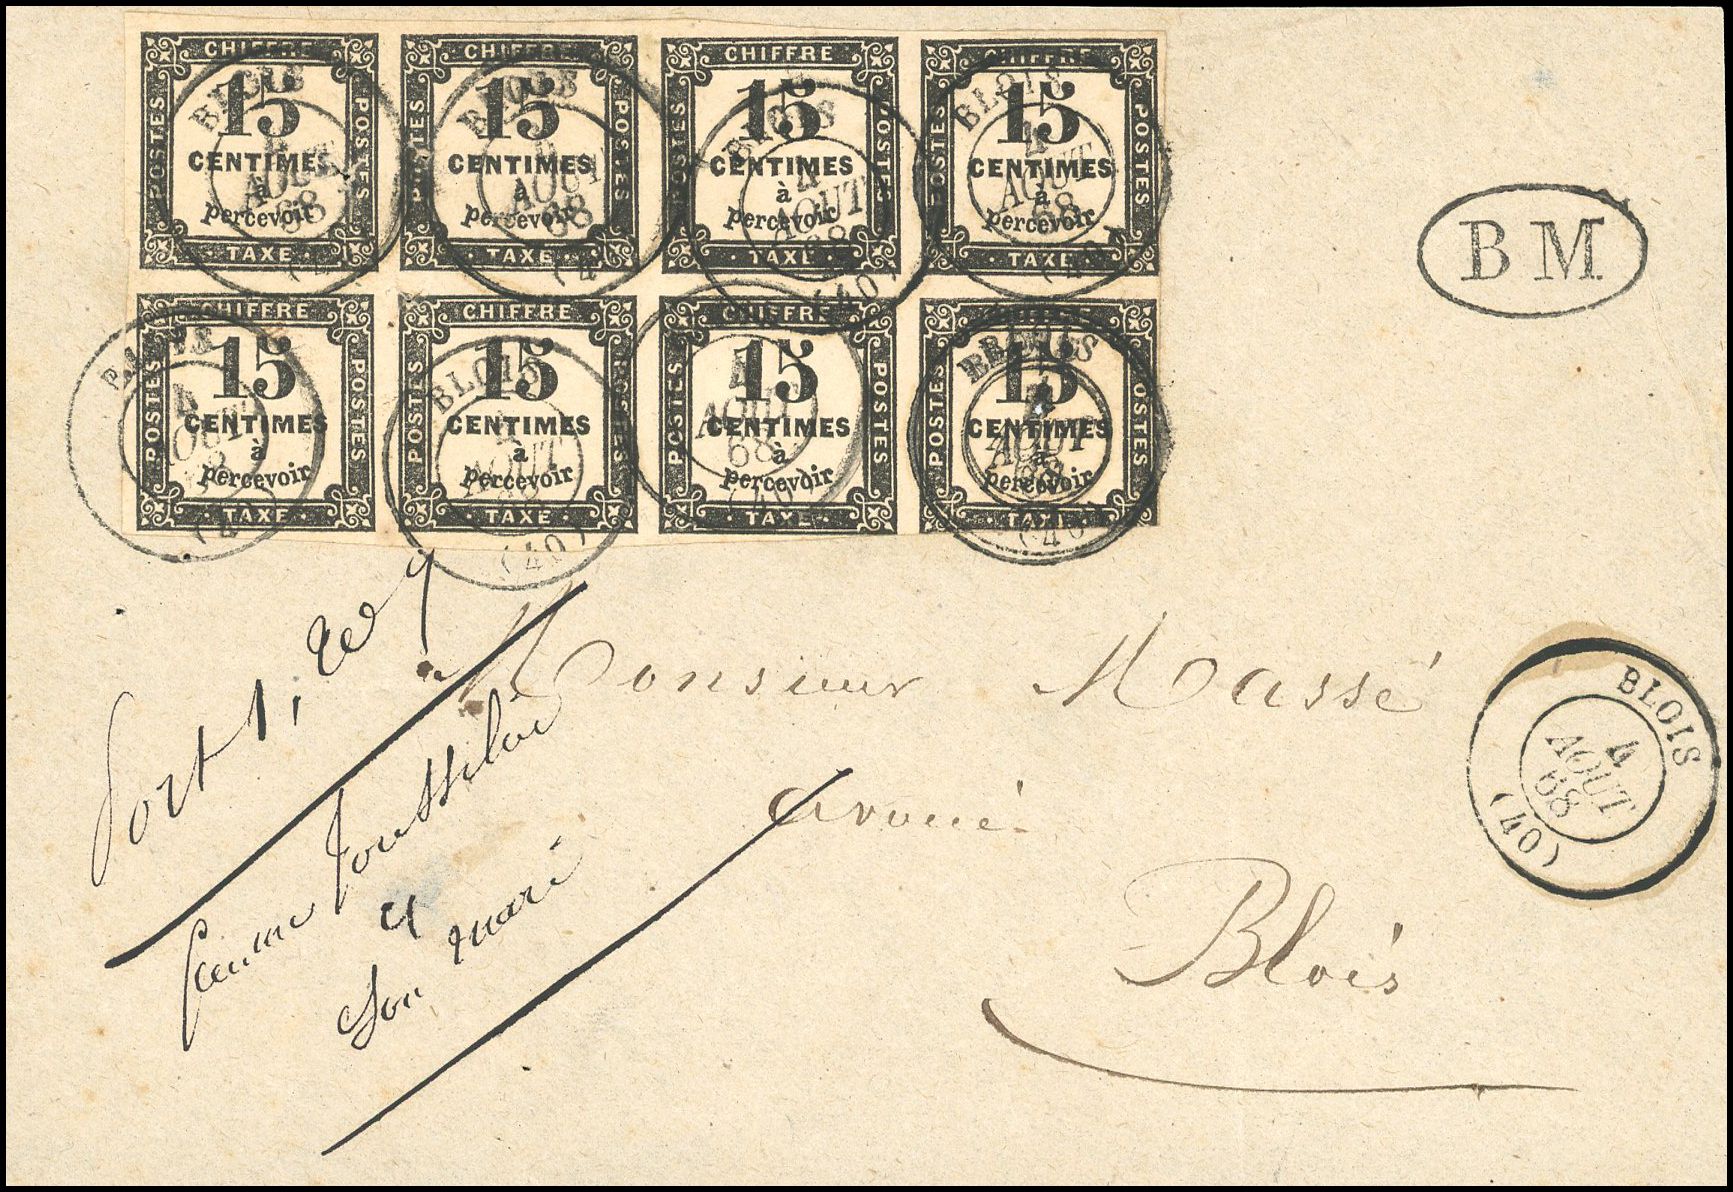 CHIFFRE CHIFFRE CHIFFRE CHIFFRE
POSTES 15 POSTES POSTES 15 POSTES POSTES 15 POSTES POSTES 15 POSTES
CENTIMES CENTIMES CENTIMES CENTIMES
à à à à
percevoir percevoir percevoir percevoir
TAXE TAXE TAXE TAXE
CHIFFRE CHIFFRE CHIFFRE CHIFFRE
POSTES 15 POSTES POSTES 15 POSTES POSTES 15 POSTES POSTES 15 POSTES
CENTIMES CENTIMES CENTIMES CENTIMES
à à à à
percevoir percevoir percevoir percevoir
TAXE TAXE TAXE TAXE
BLOIS
4
AOUT
68
(40)
BM
Port 1,20
femme
et
son mari
Monsieur Massé
avoué
Blois
BLOIS
4
AOUT
68
(40)